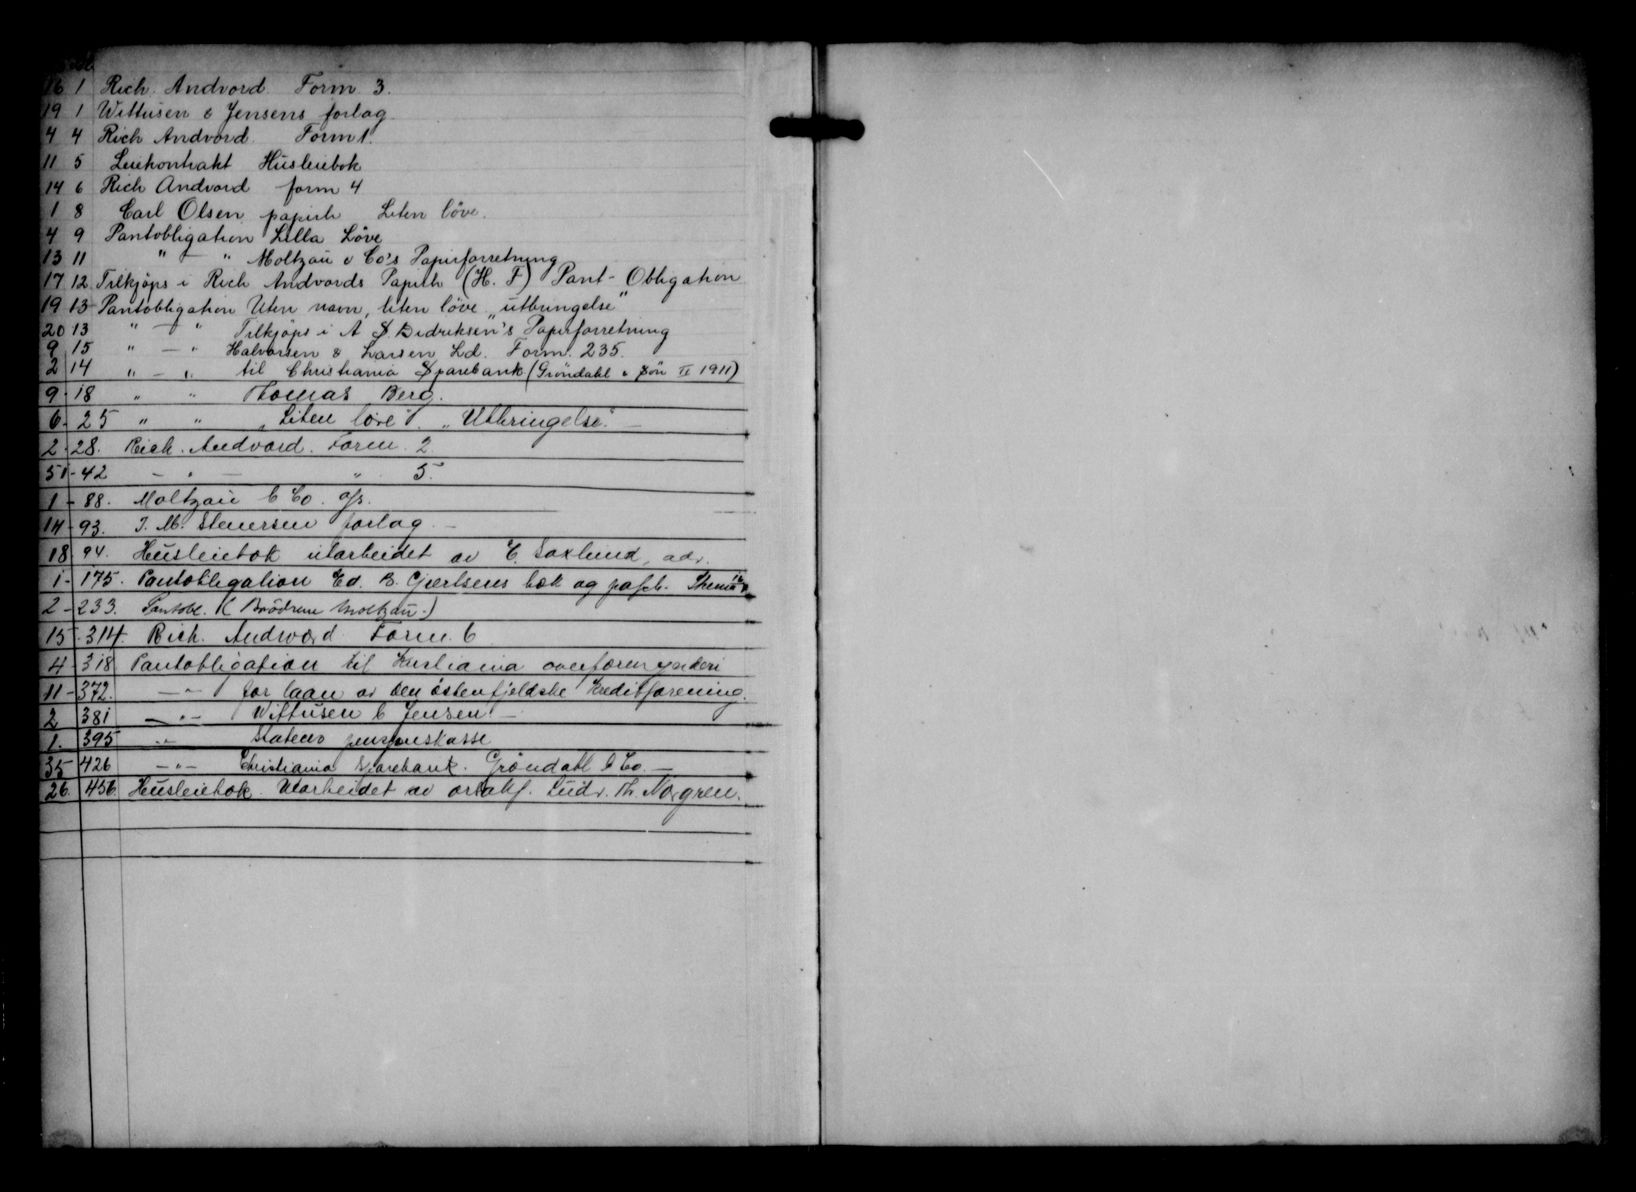 16 1 Rich. Andvord. Form 3.
19 1 Wittusen & Jensens forlag
4 4 Rich Andvord. Form 1.
11 5 Leiekontrakt Husleiebok
14 6 Rich Andvord form 4
1 8 Carl Olsen papirh Liten löve.
4 9 Pantobligation Lilla Löve
13 11 " — " Moltzau & Co's Papirforretning
17 12 Tilkjöps i Rich Andvords Papirh (H. F) Pant-Obligation
19 13 Pantobligation Uten navn, liten löve „utbringelse"
20 13 " — " Tilkjöps i A S. Didriksen's Papirforretning
9 15 " — " Halvorsen & Larsen Ld. Form. 235.
2 14 " — " til Christiania Sparebank (Gröndahl & Sön II 1911)
9 - 18 " " Thomas Berg.
6 - 25 " " „Liten löve". „Utbringelse." —
2 - 28. Rich. Andvord. Form. 2
51 - 42 — " — " 5.
1 - 88. Moltzau & Co. a/s.
14 - 93. J. M. Stenersen forlag. —
18 94. Husleiebok utarbeidet av C. Saxlund, adv.
1 - 175. Pantobligation Ed. B. Gjertsens bok og paph.
2 - 233. Pantobl. (Brödrene Moltzau.)
15 - 314. Rich. Andvord Form. 6
4 - 318 Pantobligation til Kristiania overformynderi
11 - 372. — " — for laan av Den östenfjeldske Kreditforening.
2 381 — " — Wittusen & Jensen. —
1. 395 — " — Statens pensjonskasse
35 426 — " — Christiania Sparebank. Gröndahl & Co. —
26. 456. Husleiebok. Utarbeidet av o.r.sakf. Ludv. Th. Norgren.